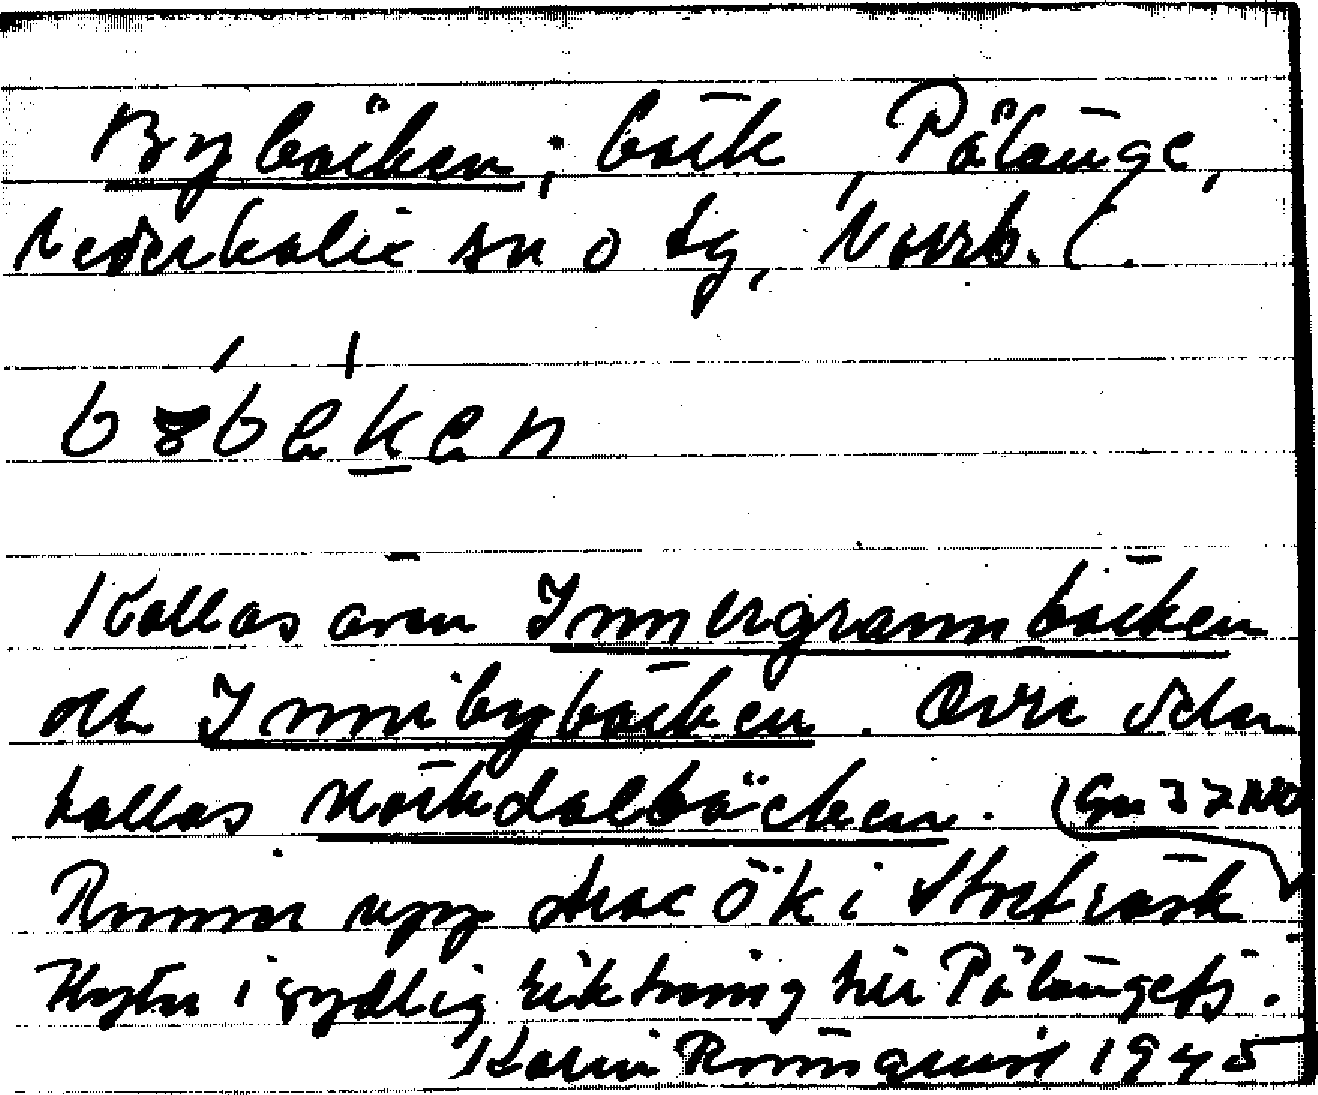 Bybäcken; bäck, Pålänge,
Nederkalix sn o tg, Norrb. l.
Kallas även Innergrannbäcken
och Innibybäcken. Övre delen
kallas Mörkdalbäcken.
Rinner upp strax ö k i Storträsk
Flyter i sydlig riktning till Pålängefj.
Karin Rönnquist 1945